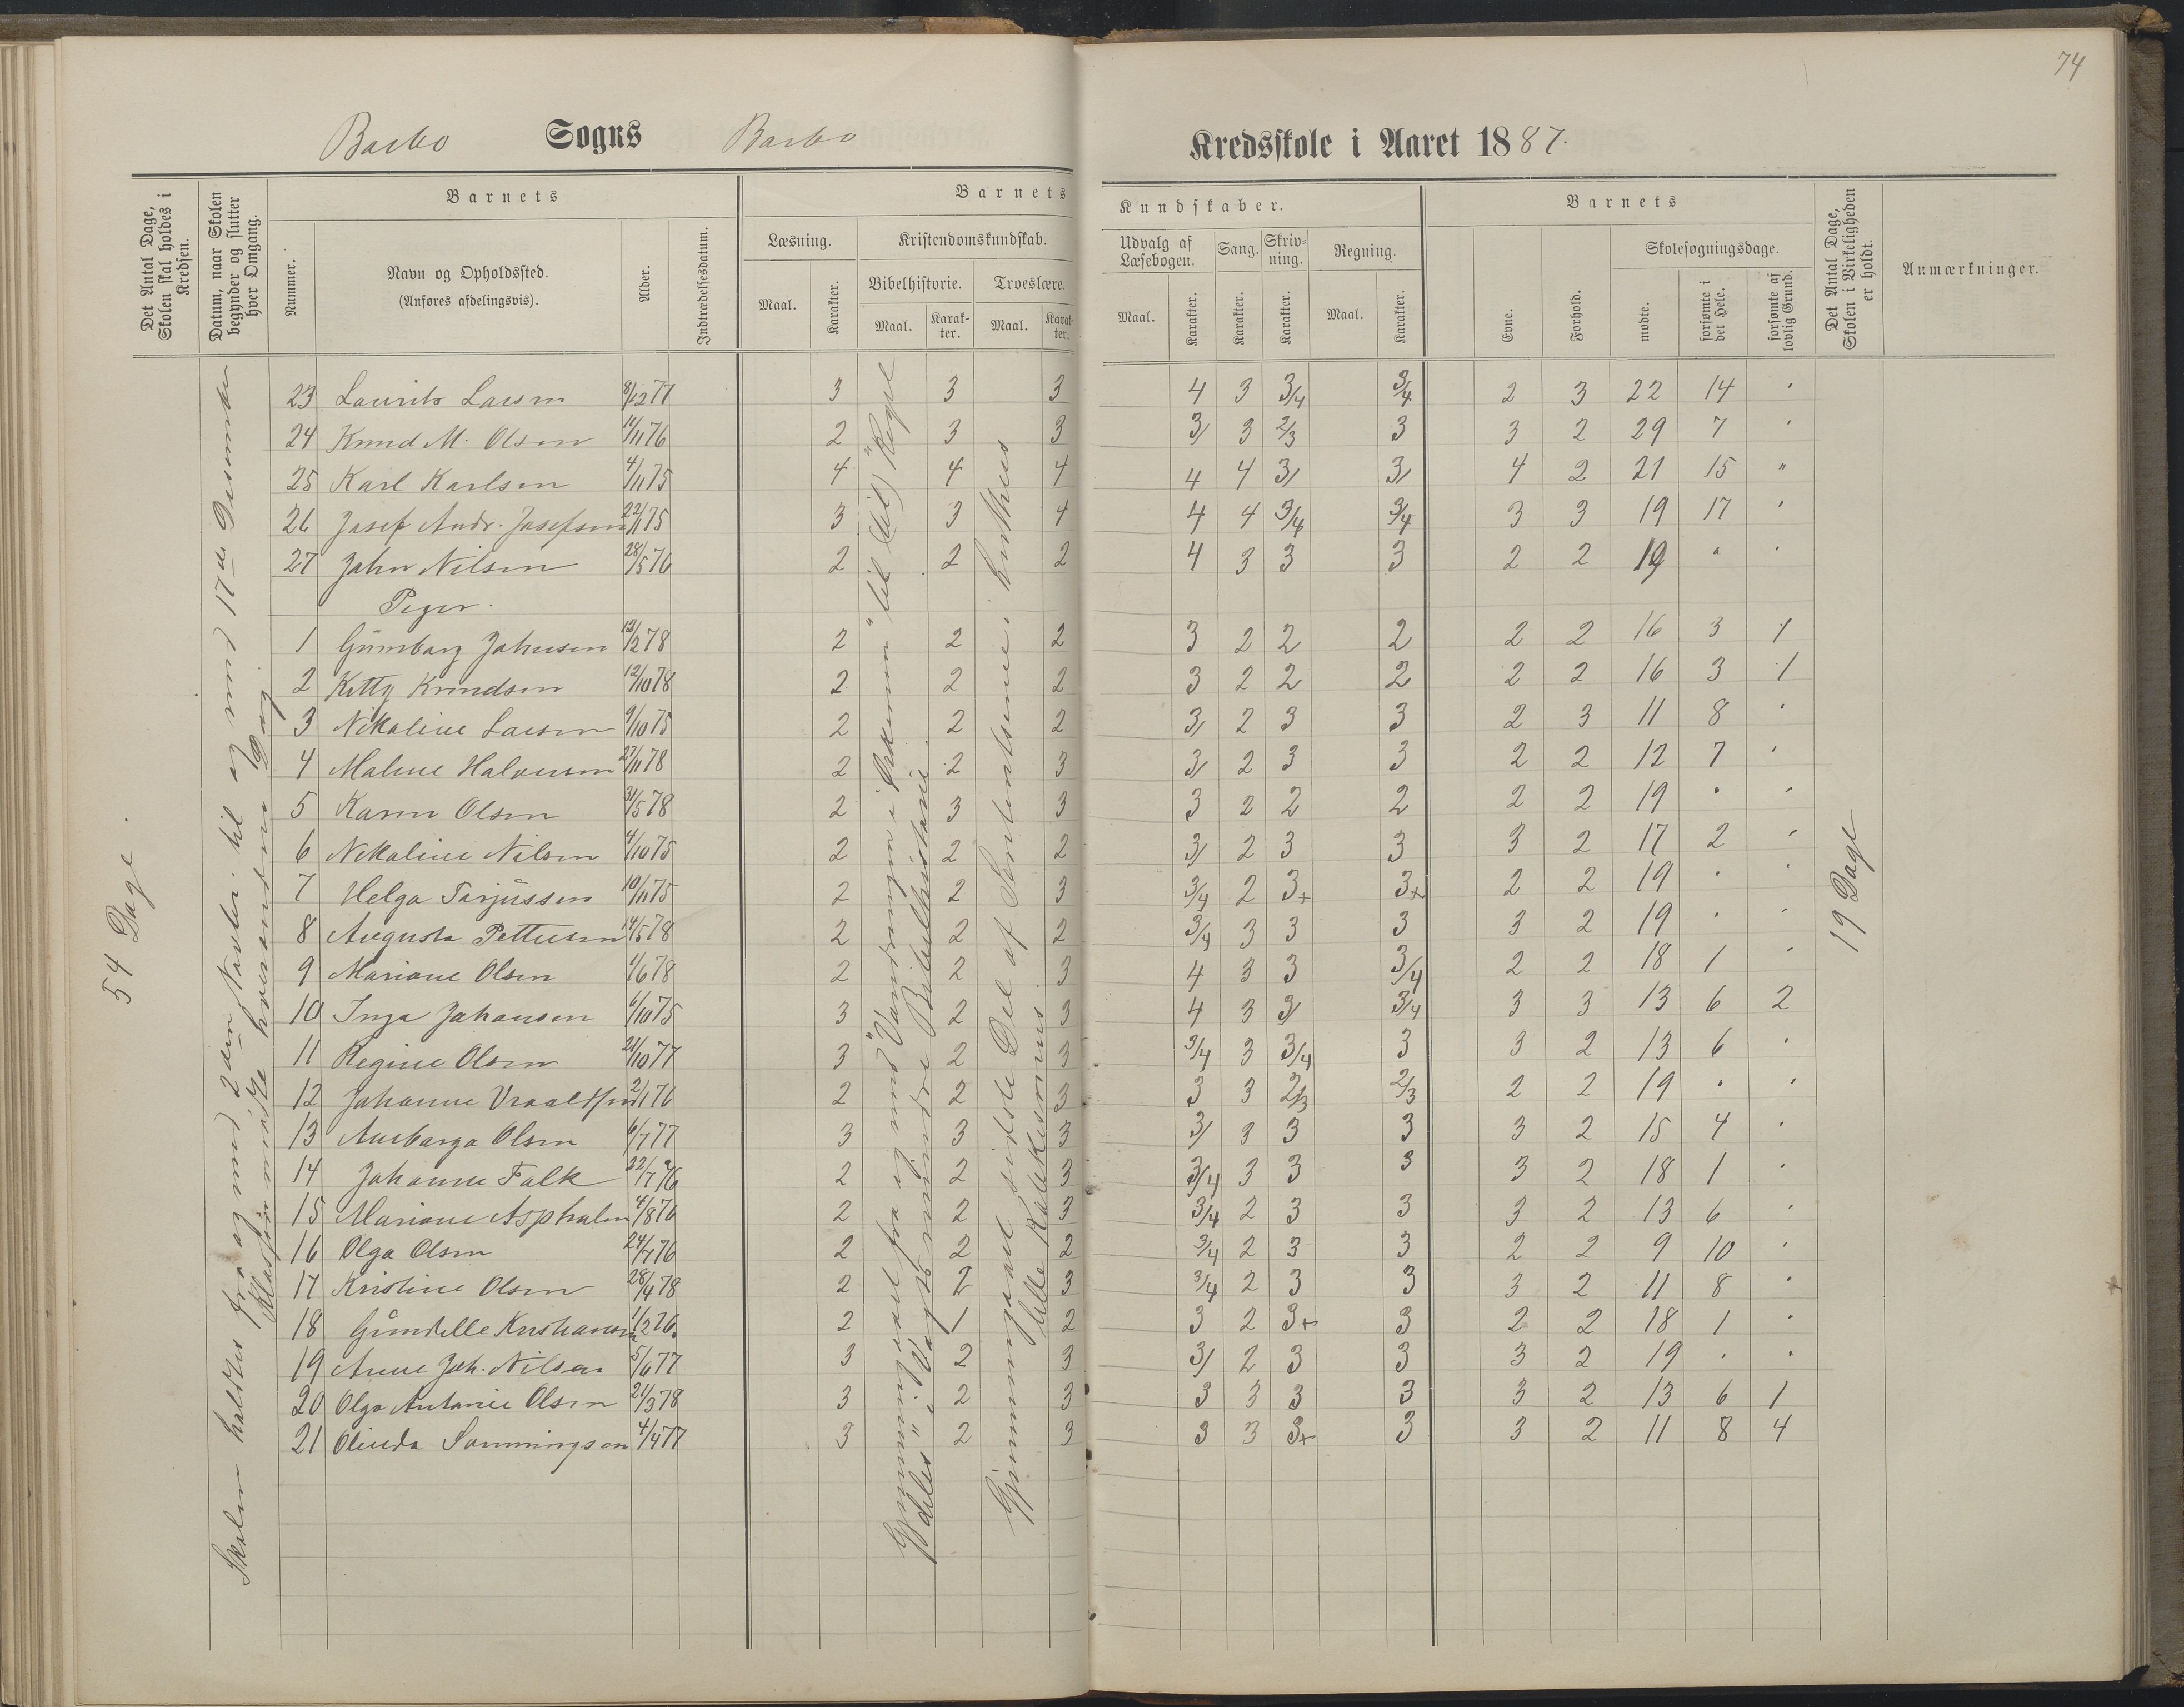 74
Barbo Sogns Barbo Kredsskole i Aaret 1887.
Det Antal Dage, Skolen skal holdes i Kredsen.
Datum, naar Skolen begynder og slutter hver Omgang.
Barnets
Nummer.
Navn og Opholdssted.
(Anføres afdelingsvis).
Alder.
Indtrædelsesdatum.
Barnets Kundskaber.
Læsning.
Maal. Karakter.
Kristendomskundskab.
Bibelhistorie. Troeslære.
Maal. Karakter. Maal. Karakter.
Udvalg af Læsebogen.
Maal. Karakter.
Sang.
Karakter.
Skrivning.
Karakter.
Regning.
Maal. Karakter.
Barnets
Evne.
Forhold.
Skolesøgningsdage.
mødte.
forsømte i det Hele.
forsømte af lovlig Grund.
Det Antal Dage, Skolen i Virkeligheden er holdt.
Anmærkninger.
54 Dage.
Skolen holdtes fra og med 2den Novbr. til og med 17de Desember
Klassen mødte hverandren Dag
23 Laurits Larsen 8/12 77 3 3 3 4 3 3/4 3/4 2 3 22 14 "
24 Knud M. Olsen 14/11 76 2 3 3 3/ 3 2/3 3 3 2 29 7 "
25 Karl Karlsen 4/11 75 4 4 4 4 4 3/ 3/ 4 2 21 15 "
26 Josef Andr. Josefsen 22/11 75 3 3 4 4 4 3/4 3/4 3 3 19 17 "
27 John Nilsen 28/5 76 2 2 2 4 3 3 3 2 2 19 " "
Piger.
1 Gunborg Johnsen 13/2 78 2 2 2 3 2 2 2 2 2 16 3 1
2 Kitty Knudsen 12/10 78 2 2 2 3 2 2 2 2 2 16 3 1
3 Nikoline Larsen 9/10 75 2 2 2 3/ 2 3 3 2 3 11 8 "
4 Malene Halvorsen 27/11 78 2 2 3 3/ 2 3 3 2 2 12 7 "
5 Karen Olsen 31/5 78 2 3 3 3 2 2 2 2 2 19 " "
6 Nikoline Nilsen 4/10 75 2 2 2 3/ 2 3 3 3 2 17 2 "
7 Helga Tarjussen 10/11 75 2 2 3 3/4 2 3+ 3+ 2 2 19 " "
8 Augusta Pettersen 14/5 78 2 2 2 3/4 3 3 3 3 2 19 " "
9 Mariane Olsen 1/6 78 2 2 3 4 3 3 3/4 2 2 18 1 "
10 Inga Johansen 6/10 75 3 2 3 4 3 3/ 3/4 3 3 13 6 2
11 Regine Olsen 21/10 77 3 2 3 3/4 3 3/4 3 3 2 13 6 "
12 Johanne 2/1 76 2 2 3 3 3 2/3 2/3 2 2 19 " "
13 Anborga Olsen 6/7 77 3 3 3 3/ 3 3 3 3 2 15 4 "
14 Johanne Falk 22/7 76 2 2 3 3/4 3 3 3 3 2 18 1 "
15 Mariane 4/8 76 2 2 3 3/4 2 3 3 3 2 13 6 "
16 Olga Olsen 24/7 76 2 2 2 3/4 2 3 3 2 2 9 10 "
17 Kristine Olsen 28/4 78 2 2 3 3/4 2 3 3 3 2 11 8 "
18 Gundelle Kristiansen 1/2 76. 2 1 2 3 2 3+ 3 2 2 18 1 "
19 Anne Joh. Nilsen 5/6 77 3 2 3 3/ 2 3 3 3 2 19 " "
20 Olga Antonie Olsen 21/3 78 3 2 3 3 3 3 3 3 2 13 6 1
21 Olinda Sonningsen 4/4 77 3 2 3 3 3 3+ 3 3 2 11 8 4
Gjennemgaaet fra og med "Vandringen i Ørkenen" til (til) "Riget
deles" i Vogts mindre Bibelhistorie.
Gjennemgaaet sidste Del af Sententserne i Luthers
lille Katekismus.
19 Dage